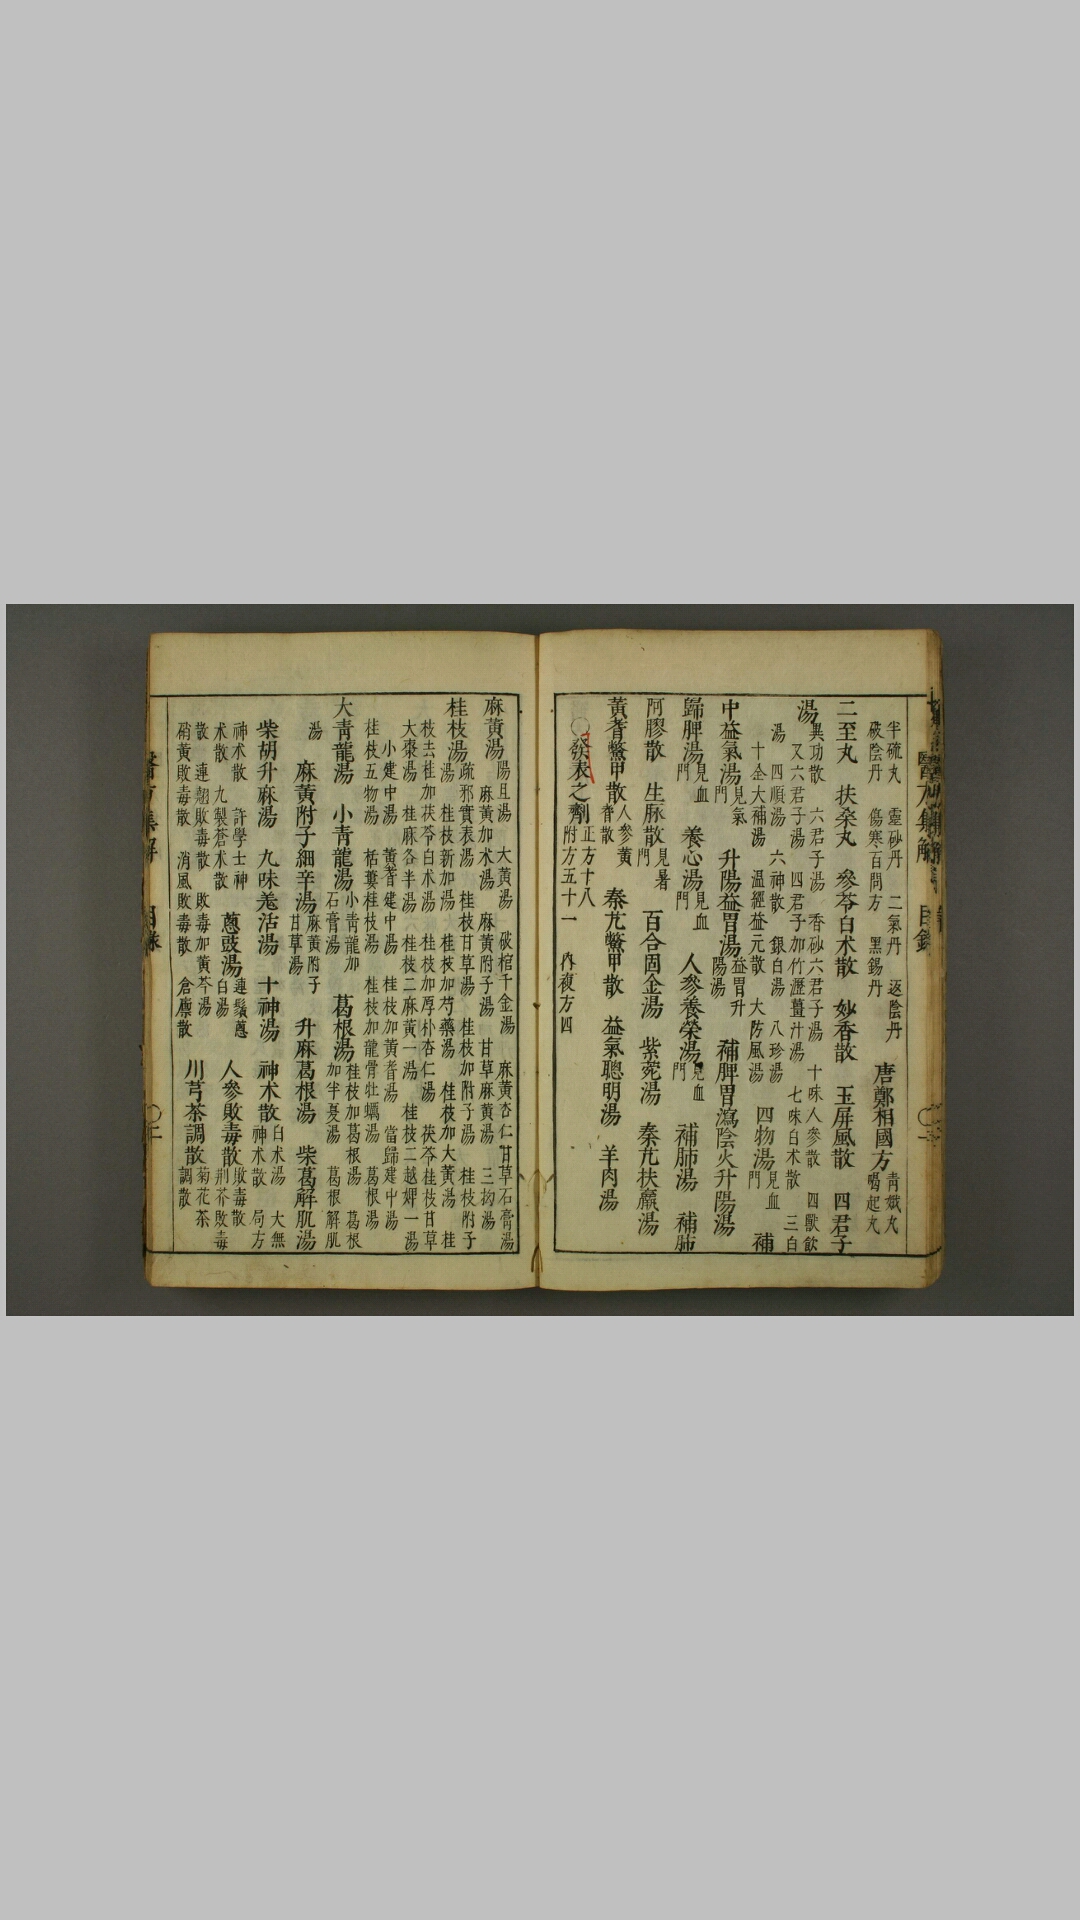 半硫丸　靈砂丹　二氣丹　返陰丹
破陰丹　傷寒百問方　黑錫丹
唐鄭相國方
青娥丸
喝起丸
二至丸　扶桑丸　參苓白术散　妙香散　玉屏風散　四君子
湯
異功散　六君子湯　香砂六君子湯　十味人參散　四獸飲
又六君子湯　四君子加竹瀝薑汁湯　七味白术散　三白
湯　四順湯　六神散　銀白湯　八珍湯
十全大補湯　溫經益元散　大防風湯
四物湯
見血
門
補
中益氣湯
見氣
門
升陽益胃湯
益胃升
陽湯
補脾胃瀉陰火升陽湯
歸脾湯
見血
門
養心湯
見血
門
人參養榮湯
見血
門
補肺湯　補肺
阿膠散　生脉散
見暑
門
百合固金湯　紫菀湯　秦艽扶羸湯
黃耆鱉甲散
人參黃
耆散
秦艽鱉甲散　益氣聰明湯　羊肉湯
〇發表之劑
正方十八
附方五十一　內複方四
麻黃湯
陽旦湯　大黃湯　破棺千金湯　麻黃杏仁甘草石膏湯
麻黃加术湯　麻黃附子湯　甘草麻黃湯　三拗湯
桂枝湯
疏邪實表湯　桂枝甘草湯　桂枝加附子湯　桂枝附子
湯　桂枝新加湯　桂枝加芍藥湯　桂枝加大黃湯　桂
枝去桂加茯苓白术湯　桂枝加厚朴杏仁湯　茯苓桂枝甘草
大棗湯　桂麻各半湯　桂枝二麻黃一湯　桂枝二越婢一湯
小建中湯　黃耆建中湯　桂枝加黃耆湯　當歸建中湯
桂枝五物湯　栝蔞桂枝湯　桂枝加龍骨牡蠣湯　葛根湯
大青龍湯　小青龍湯
小青龍加
石膏湯
葛根湯
桂枝加葛根湯　葛根
加半夏湯　葛根解肌
湯
麻黃附子細辛湯
麻黃附子
甘草湯
升麻葛根湯　柴葛解肌湯
柴胡升麻湯　九味羗活湯　十神湯　神术散
白术湯　大無
神术散　局方
神术散　許學士神
术散　九製蒼术散
蔥豉湯
連鬚蔥
白湯
人參敗毒散
敗毒散
荊芥敗毒
散　連翹敗毒散　敗毒加黃芩湯
硝黃敗毒散　消風敗毒散　倉廩散
川芎茶調散
菊花茶
調散
醫方集解　目錄　〇二